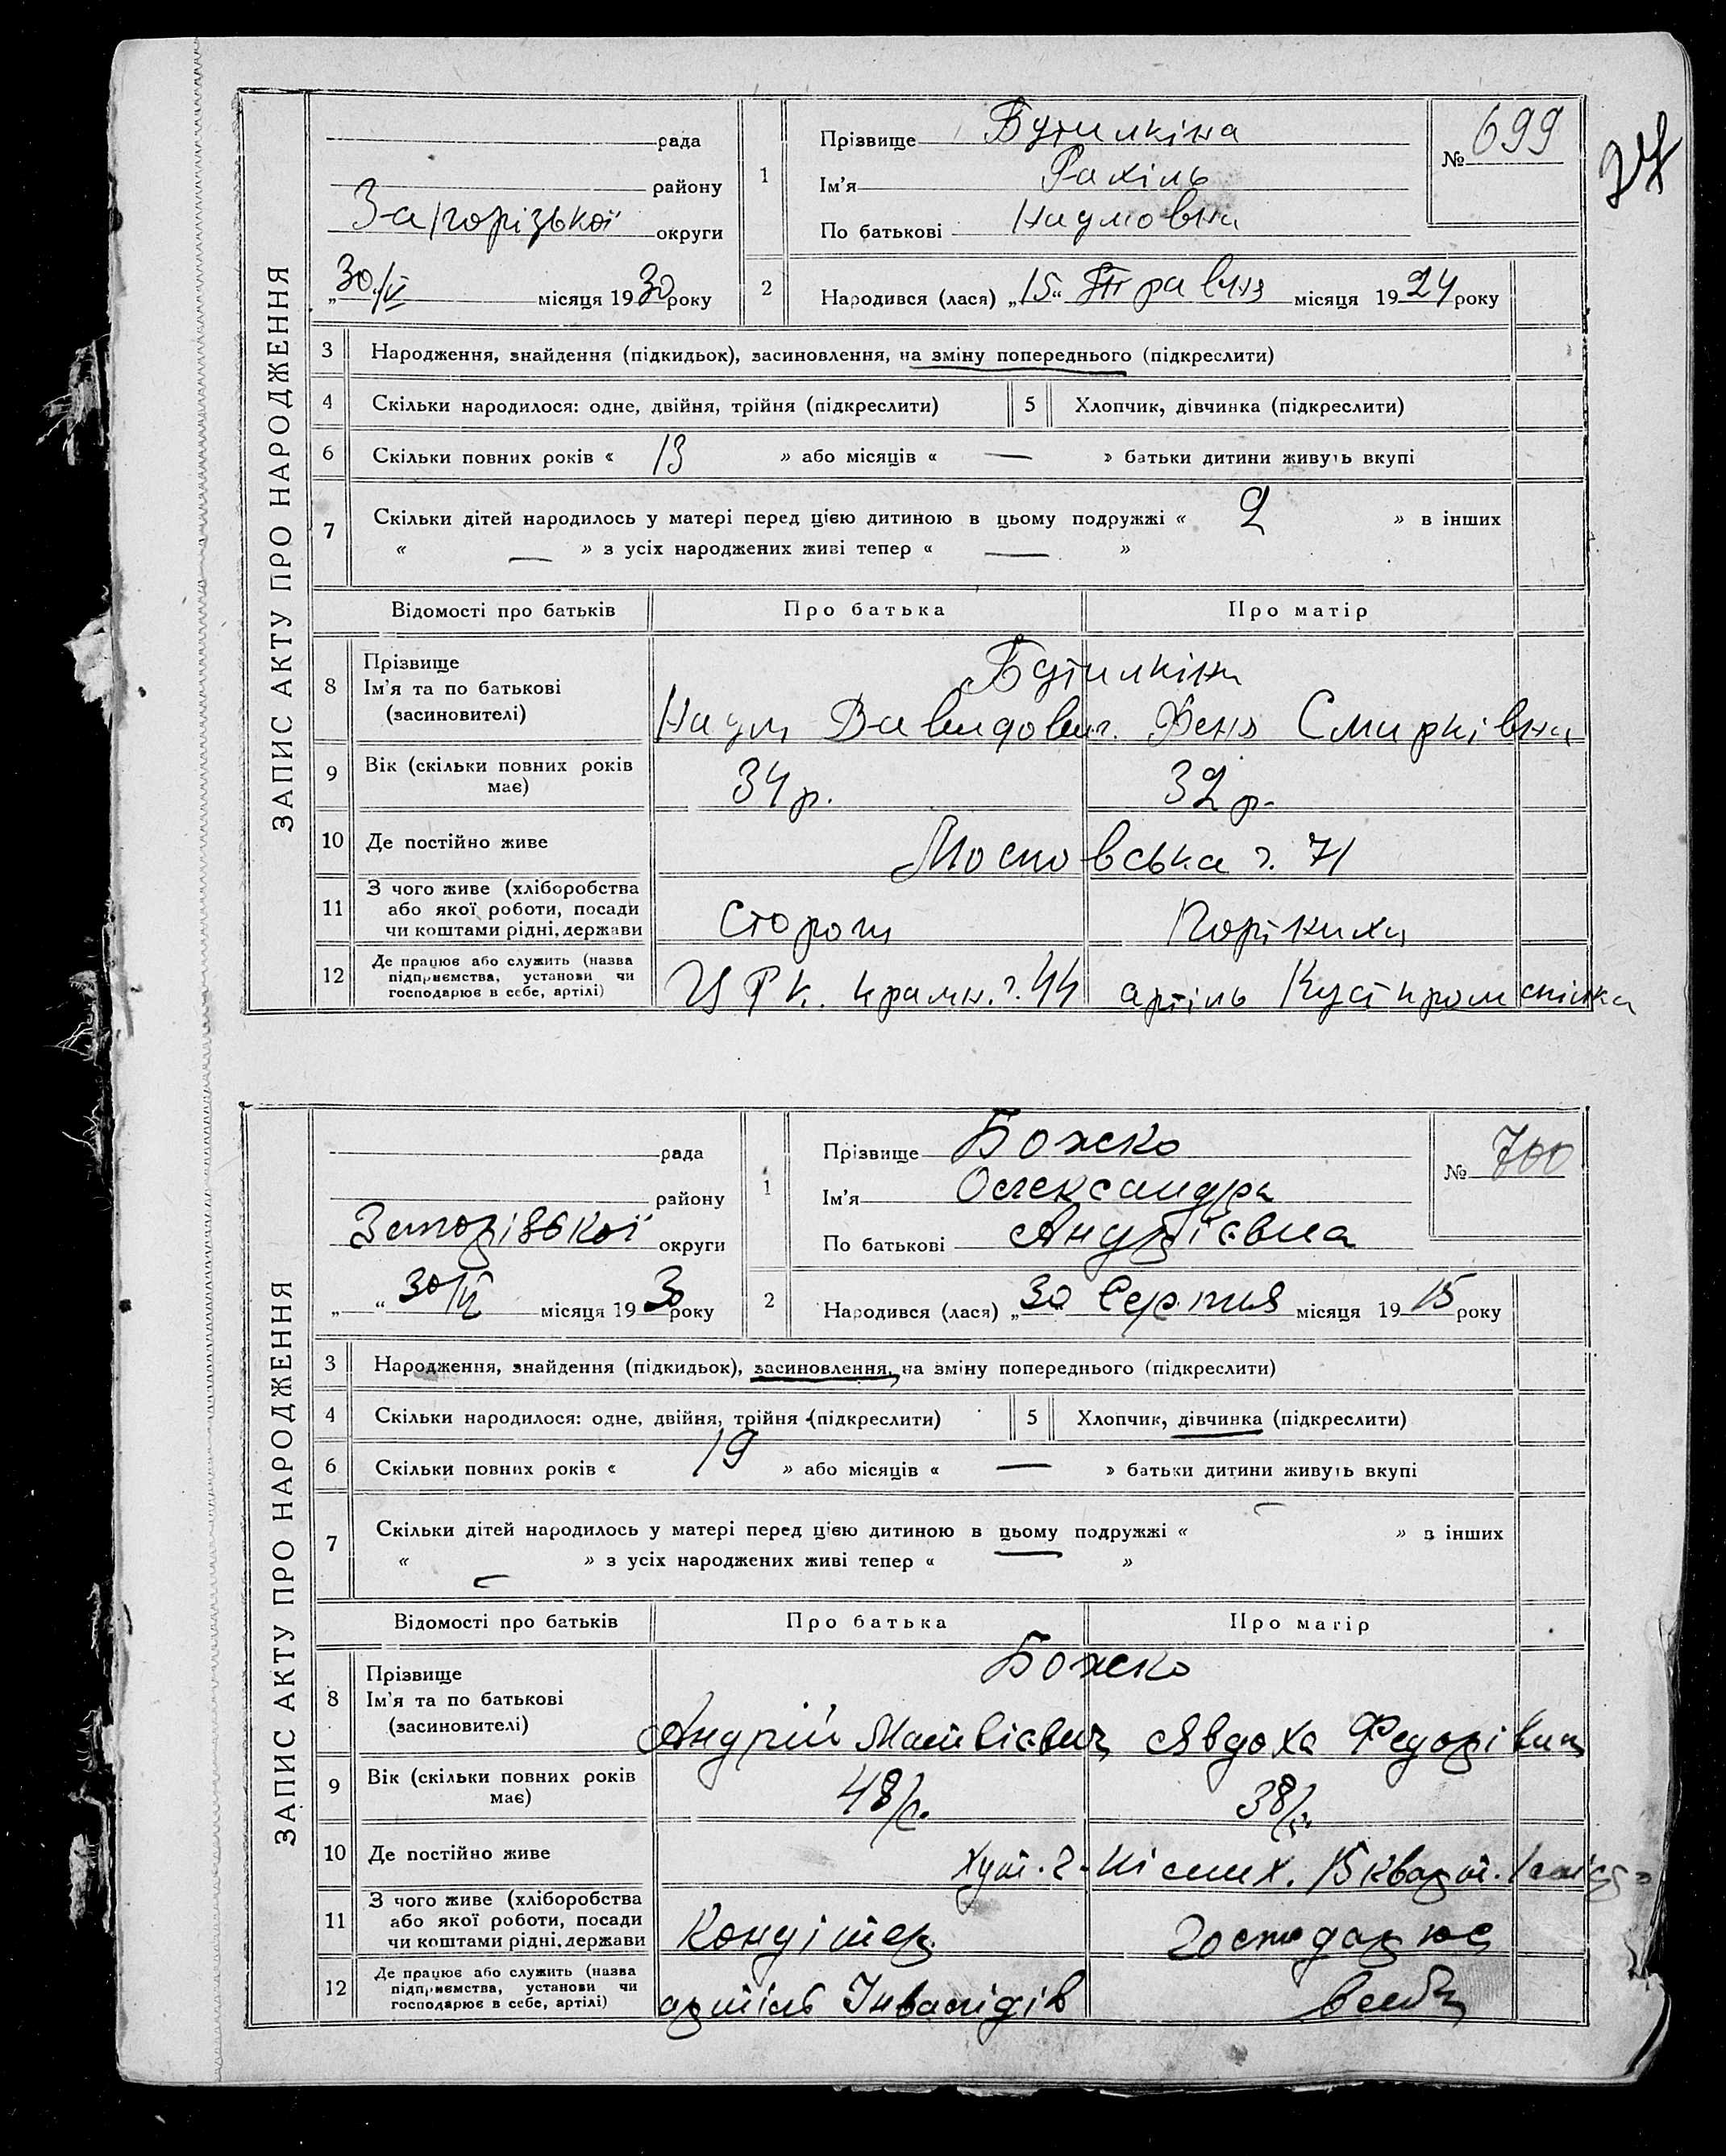 ЗАПИС АКТУ ПРО НАРОДЖЕННЯ
рада
району
Запорізької округи
„30/IV місяця 1930 року
1
Прізвище Бутилкіна
Ім'я Рахіль
По батькові Наумовна
№ 699
2
Народився (лася) „15“ Травня місяця 1924 року
3 Народження, знайдення (підкидьок), засиновлення, на зміну попереднього (підкреслити)
4 Скільки народилося: одне, двійня, трійня (підкреслити) 5 Хлопчик, дівчинка (підкреслити)
6 Скільки повних років « 13 » або місяців « — » батьки дитини живуть вкупі
7 Скільки дітей народилось у матері перед цією дитиною в цьому подружжі « 2 » в інших
« — » з усіх народжених живі тепер « — »
Відомості про батьків Про батька Про матір
8 Прізвище Ім'я та по батькові (засиновителі)
Бутилкіни
Наум Давидович. Феня Смирківна
9 Вік (скільки повних років має) 34 р. 32 р.
10 Де постійно живе Московська ч. 71
11 З чого живе (хліборобства або якої роботи, посади чи коштами рідні, держави Сторож
12 Де працює або служить (назва підприємства, установи чи господарює в себе, артілі) ЦРК. крамн. ч. 44 артіль Кустпромспілка
ЗАПИС АКТУ ПРО НАРОДЖЕННЯ
рада
району
Запорізької округи
„ “ 30/IV місяця 1930 року
1
Прізвище Божко
Ім'я Олександра
По батькові Андріївна
№ 700
2
Народився (лася) „30 Серпня місяця 1915 року
3 Народження, знайдення (підкидьок), засиновлення, на зміну попереднього (підкреслити)
4 Скільки народилося: одне, двійня, трійня (підкреслити) 5 Хлопчик, дівчинка (підкреслити)
6 Скільки повних років « 19 » або місяців « — » батьки дитини живуть вкупі
7 Скільки дітей народилось у матері перед цією дитиною в цьому подружжі « — » в інших
« — » з усіх народжених живі тепер « »
Відомості про батьків Про батька Про матір
8 Прізвище Ім'я та по батькові (засиновителі)
Божко
Андрій Матвієвич Явдоха Федорівна
9 Вік (скільки повних років має) 48 р. 38 р.
10 Де постійно живе хут. 15 кварт.
11 З чого живе (хліборобства або якої роботи, посади чи коштами рідні, держави Кондітер. Господарює
12 Де працює або служить (назва підприємства, установи чи господарює в себе, артілі) артіль Інвалідів в себе